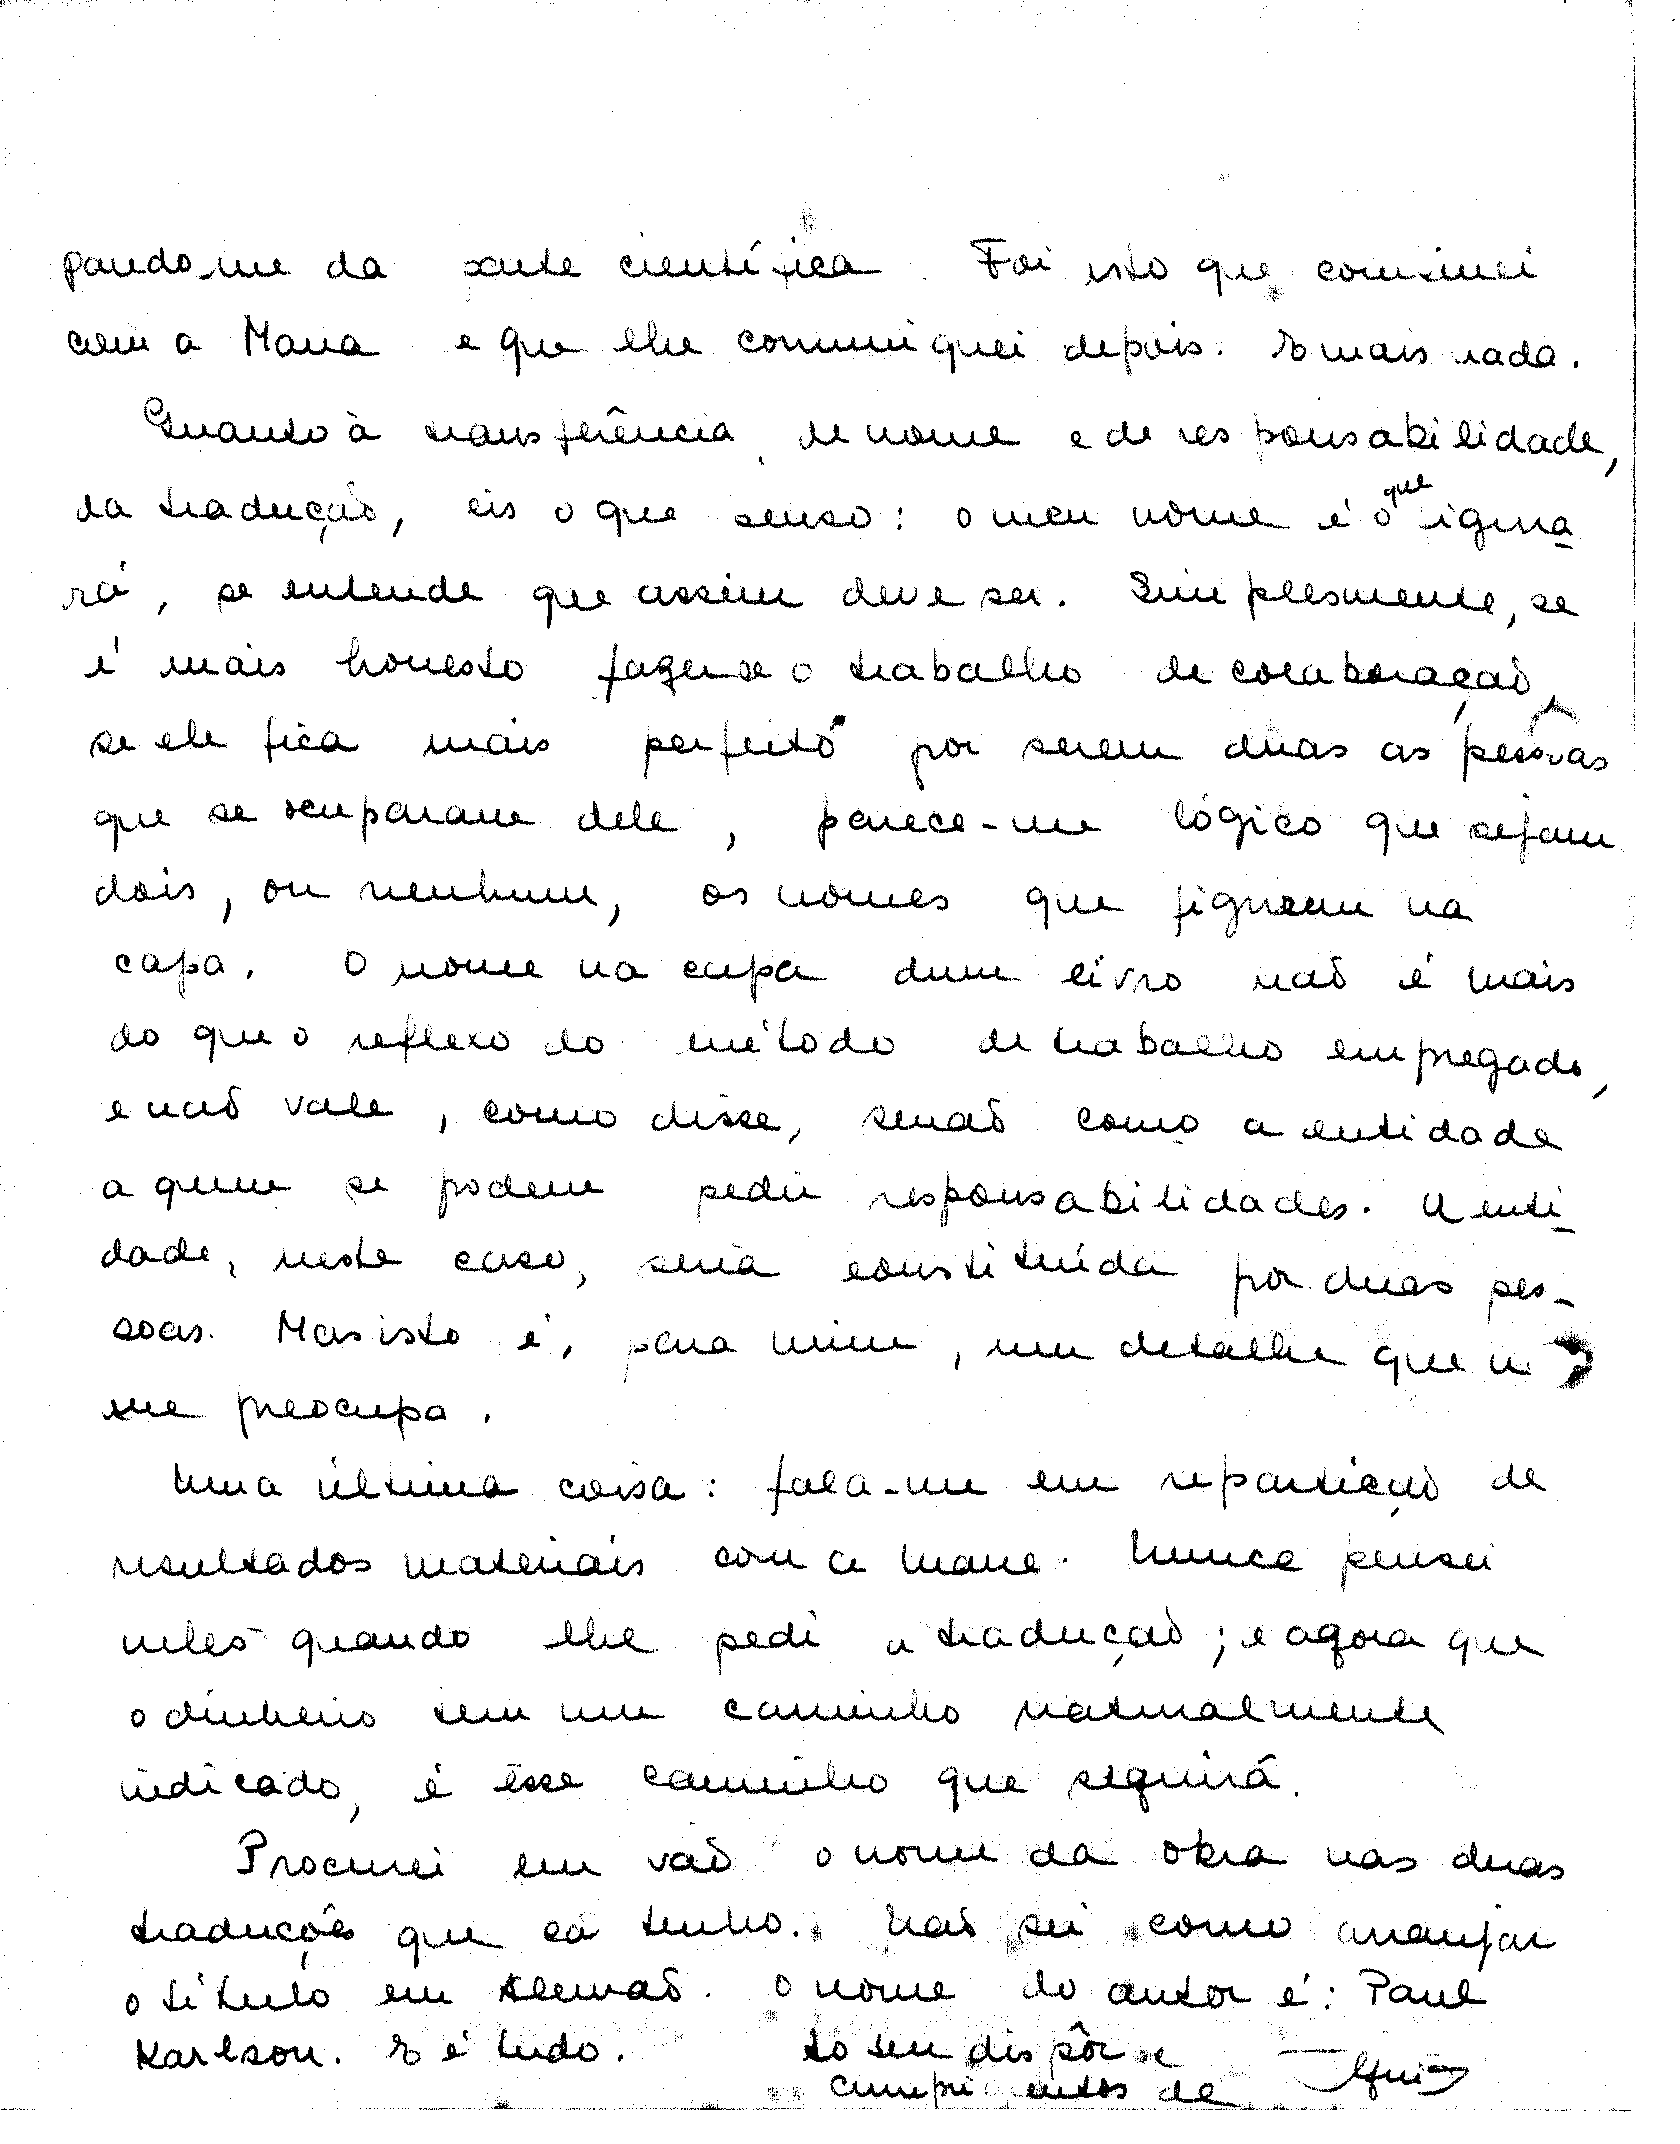 pando-me da parte científica. Foi isto que combinei
com a Mana e que lhe comuniquei depois. E mais nada.
Quanto à transferência de nome e de responsabilidade,
da tradução, eis o que penso: o meu nome é o que figura-
rá, se entende que assim deve ser. Simplesmente, se
é mais honesto fazer-se o trabalho de colaboração,
se ele fica mais perfeito por serem duas as pessoas
que se ocuparam dele, parece-me lógico que sejam
dois, ou nenhum, os nomes que figurem na
capa. O nome na capa dum livro não é mais
do que o reflexo do método de trabalho empregado,
e não vale, como disse, senão como a entidade
a quem se podem pedir responsabilidades. A enti-
dade, neste caso, seria constituída por duas pes-
soas. Mas isto é, para mim, um detalhe que
me preocupa.
Uma última coisa: fala-me em repartição de
resultados materiais com a Mana. Nunca pensei
neles quando lhe pedi a tradução; e agora que
o dinheiro tem um caminho naturalmente
indicado, é êsse caminho que seguirá.
Procurei em vão o nome da obra nas duas
traduções que cá tenho. Não sei como arranjar
o título em Alemão. O nome do autor é: Paul
Karlson. E é tudo. Ao seu dispôr e
cumprimentos de